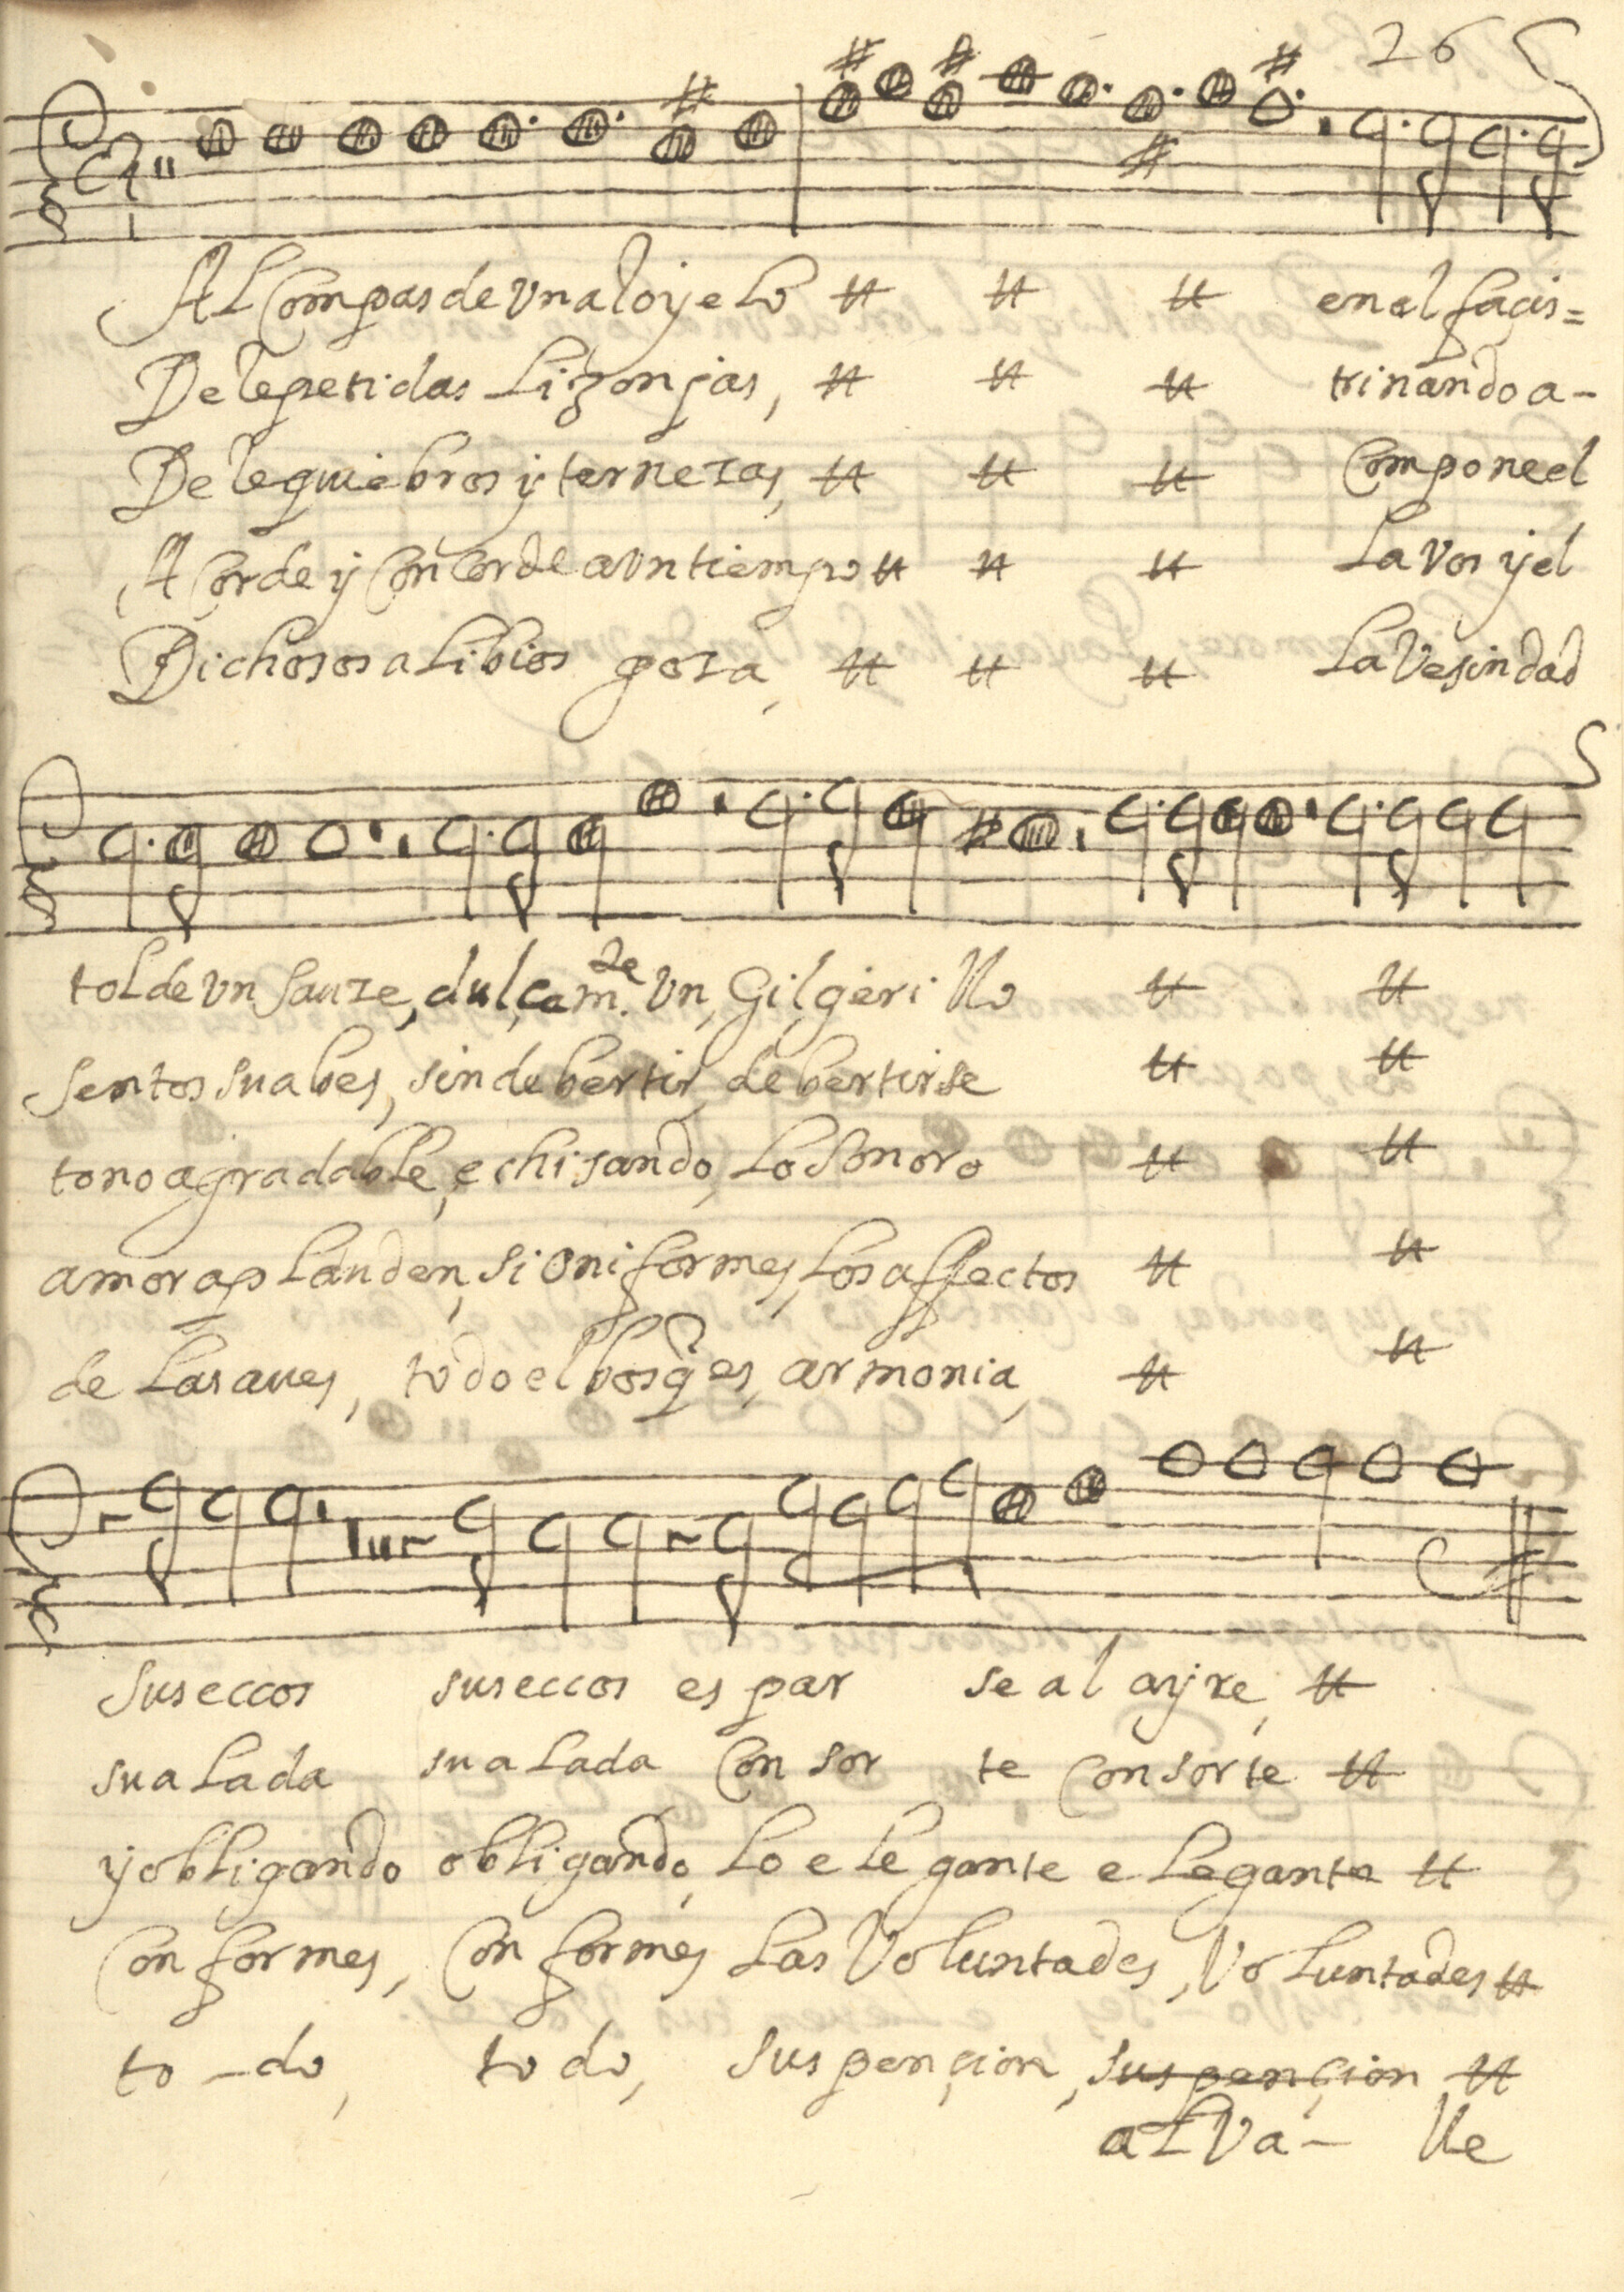 26
Al Compas de un aloyelo # # # en el facis=
De Repetidas Lizonjas, # # # trinando a-
De Requiebros y ternezas, # # # Compone el
A Corde y Concorde a un tiempo # # # La vos y el
Dichosos alibios goza, # # # La Vesindad
tol de un sauze, dulçem.te un, Gilgèrillo # #
sentos suabes, sin debertir, debertirse # #
tono agradable, echisando, lo sonoro # #
amor aplauden, si vniformes, los affectos # #
de las aues, todo el bosq̃ es, armonia, # #
sus eccos sus eccos es par se al ayre, #
su alada su alada Con sor te Consorte #
y obligando obligando, lo ele gante elegante #
Con formes, Con formes las Voluntades, Voluntades #
to-do, todo, suspençion, suspençion #
al Va- lle